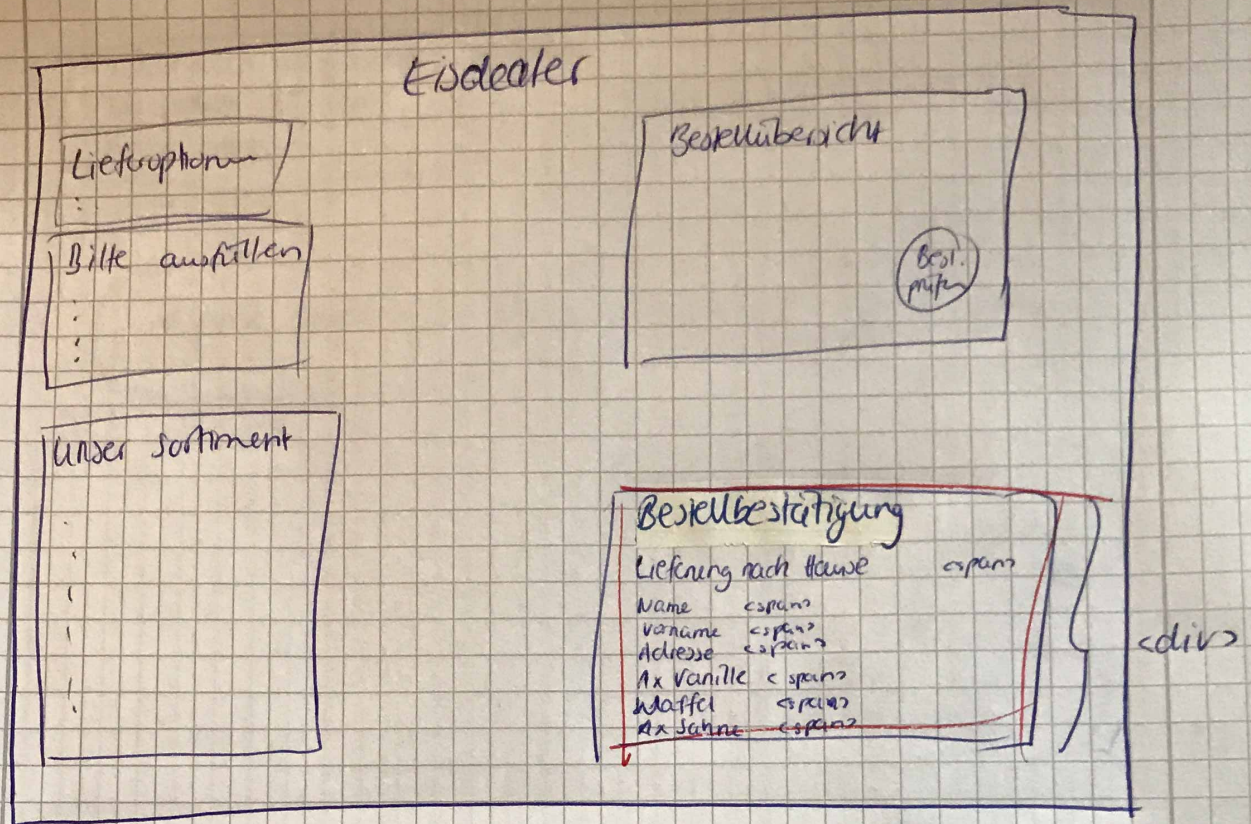 Eisdealer
Lieferoptionen
Bitte ausfüllen
Unser Sortiment
Bestellübersicht
Best.
prüfen
Bestellbestätigung
Lieferung nach Hause <span>
Name <span>
Vorname <span>
Adresse <span>
1x Vanille <span>
Waffel <span>
1x Sahne <span>
<div>